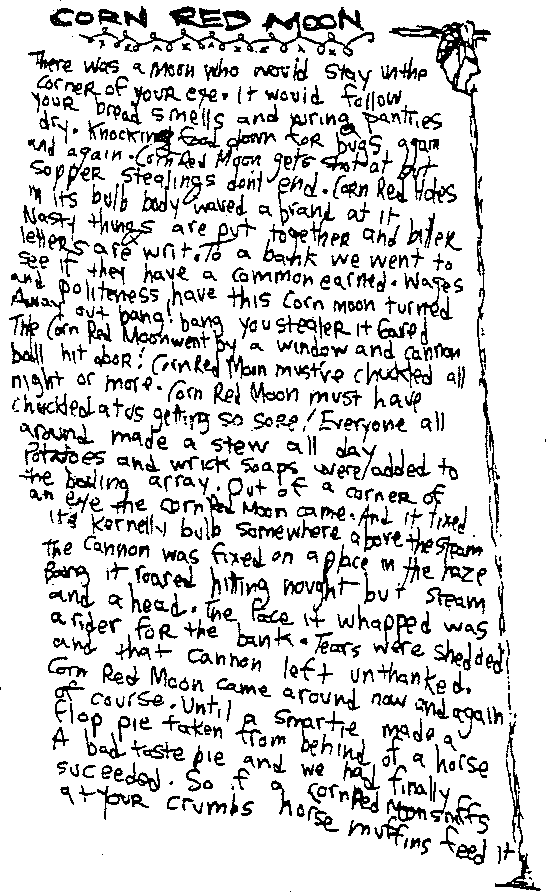 CORN RED MOON
There was a moon who would stay in the
corner of your eye. It would follow
your bread smells and pantries
dry. Knocking food down for bugs again
and again. Corn Red Moon gets shot at but
supper stealings dont end. Corn Red Holes
in its bulb body waved a brand at it
Nasty things are put together and bitter
letters are writ. To a bank we went to
see if they have a common earned. Wages
and politeness have this Corn moon turned
Away out bang! bang you stealer it
The Corn Red Moon went by a window and cannon
ball hit door! Corn Red Moon mustve chuckled all
night or more. Corn Red Moon must have
chuckled at us getting so sore! Everyone all
around made a stew all day
Potatoes and wrick soaps were added to
the boiling array. Out of a corner of
an eye the Corn Red Moon came. And it fixed
its Kernelly bulb somewhere above the steam
The Cannon was fixed on a place in the haze
Bang it roared hitting nought but steam
and a head. The face it whapped was
a rider for the bank. Tears were shedded
and that cannon left unthanked.
Corn Red Moon came around now and again
of course. Until a smartie made a
flop pie taken from behind of a horse
A bad taste pie and we had finally
succeeded. So if a corn Red Moon sniffs
at your crumbs horse muffins feed it